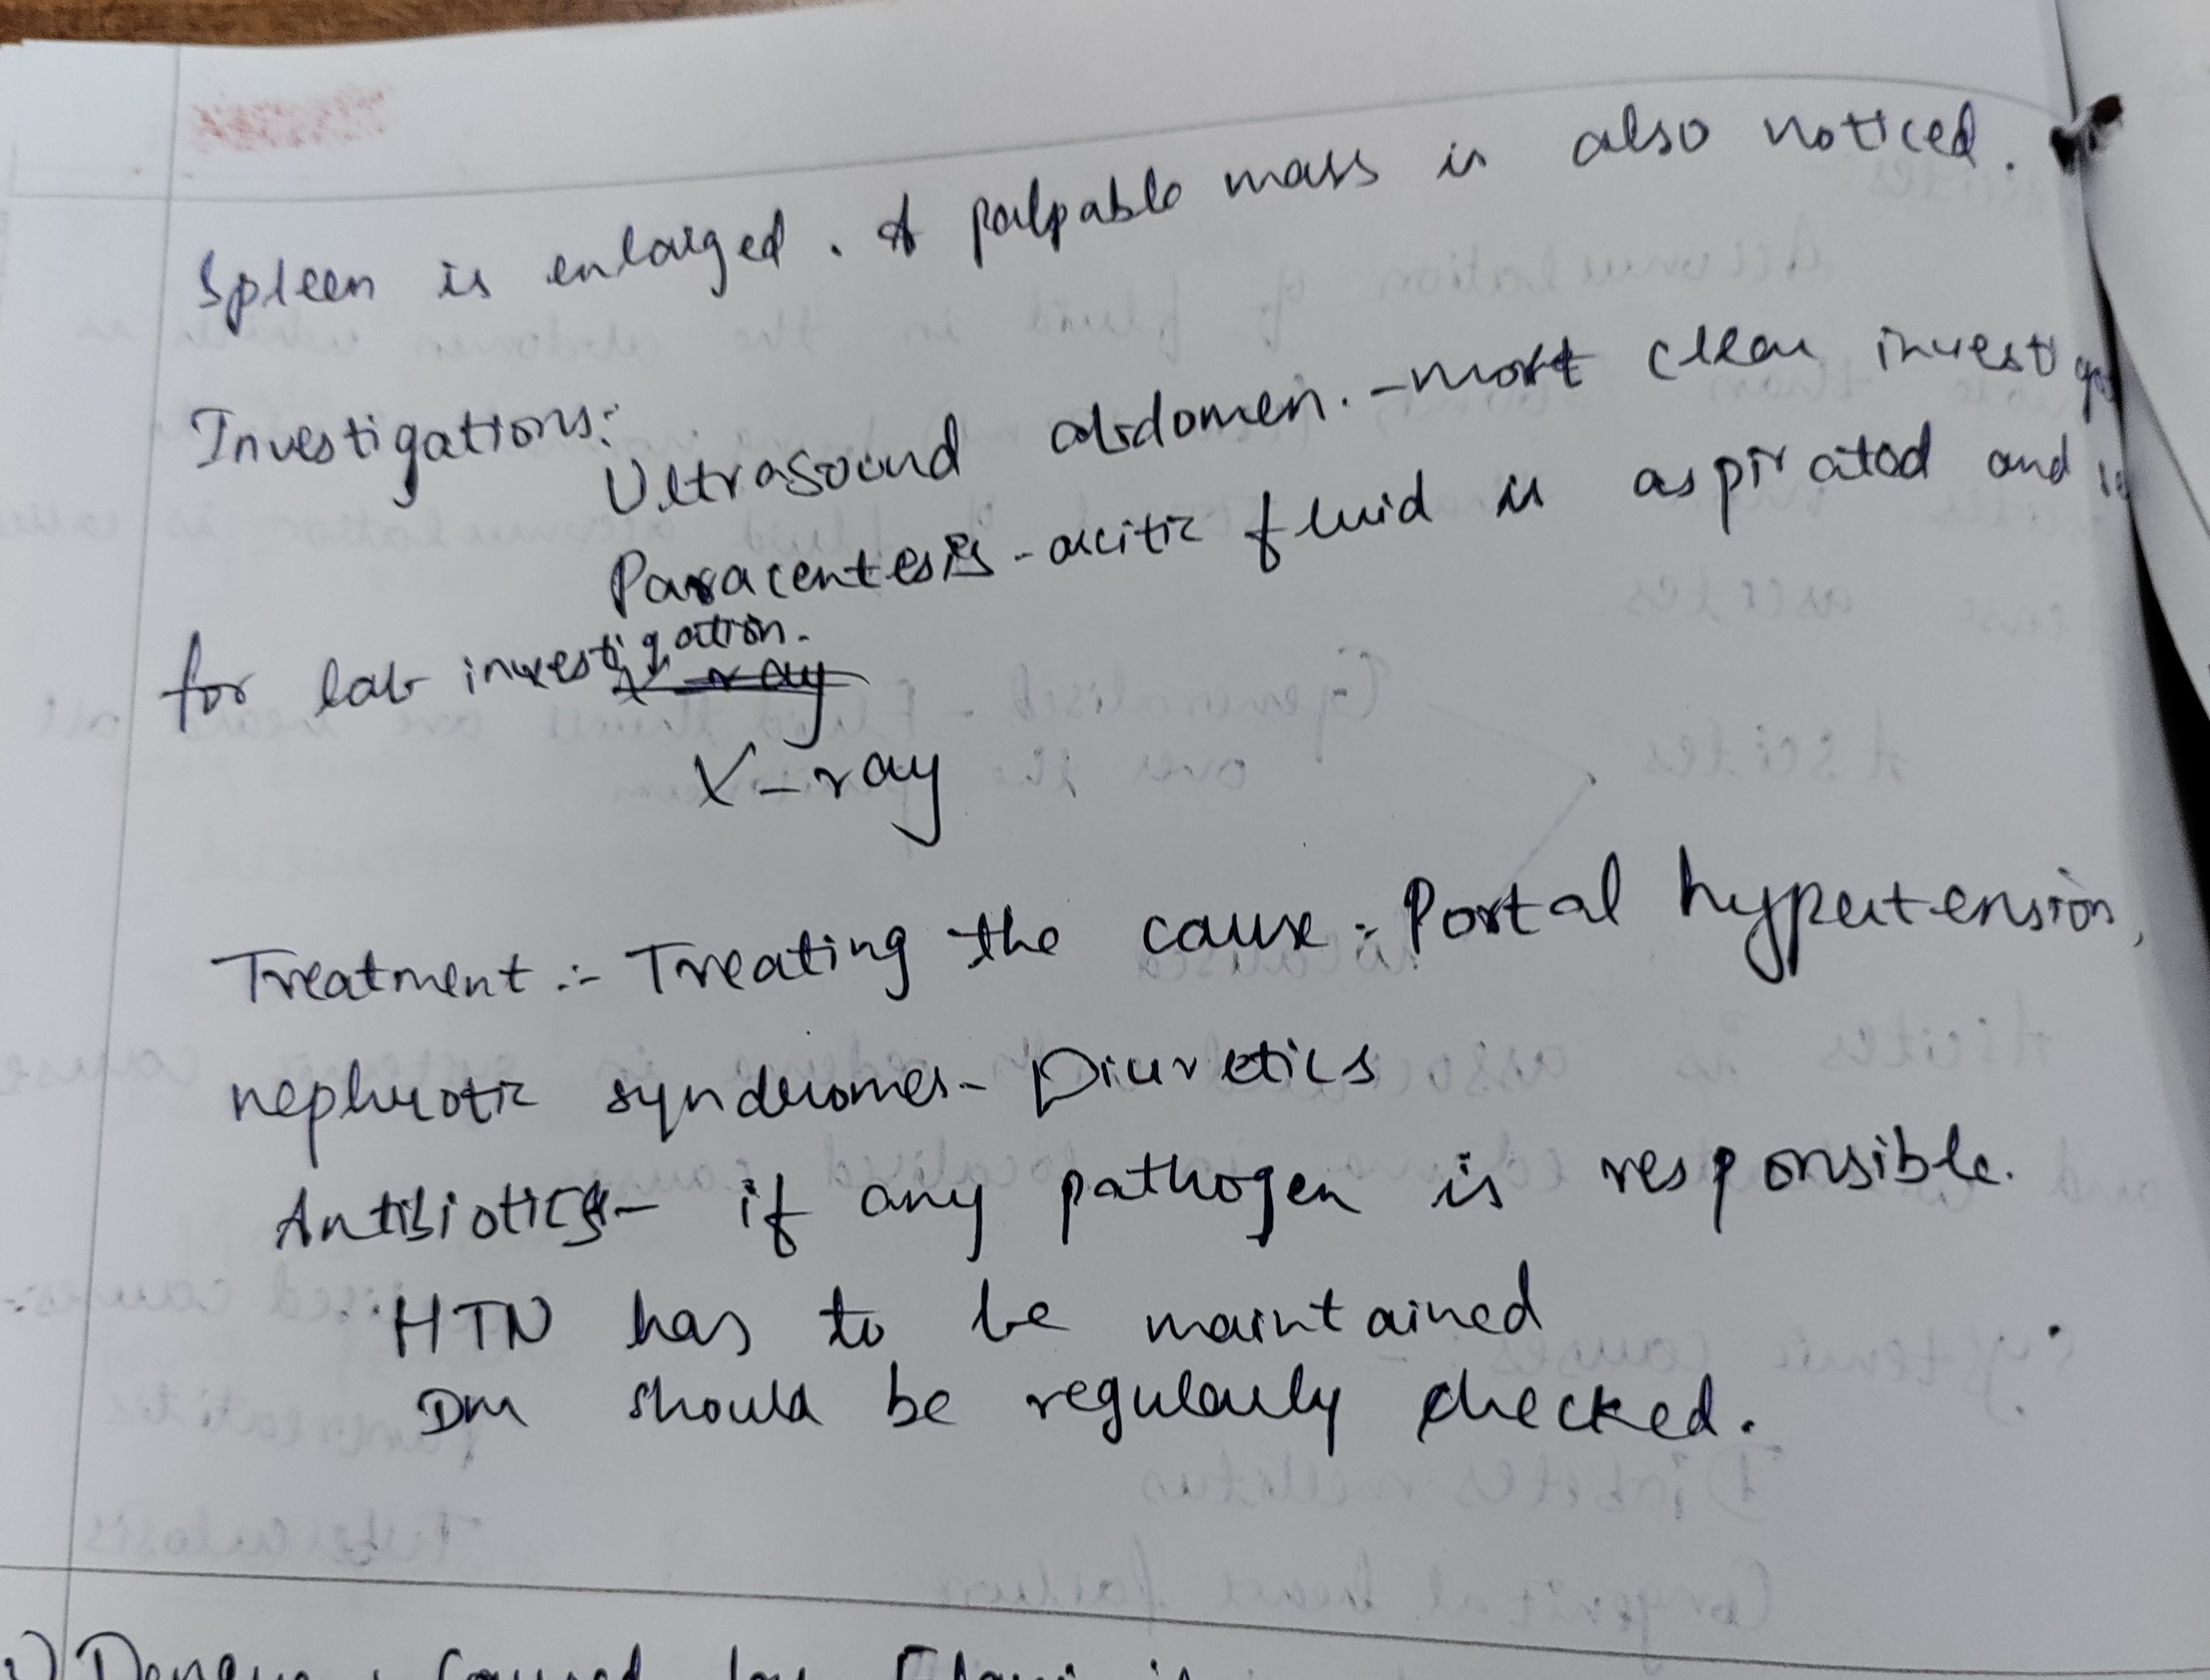 Spleen is enlarged. A palpable mass is also noticed.
Investigations:
Ultrasound abdomen. - most clear
Paracentesis - ascitic fluid is aspirated and
for lab investigation.
X-ray
Treatment :- Treating the cause : Portal hypertension,
nephrotic syndromes - Diuretics
Antibiotics - if any pathogen is responsible.
HTN has to be maintained
DM should be regularly checked.